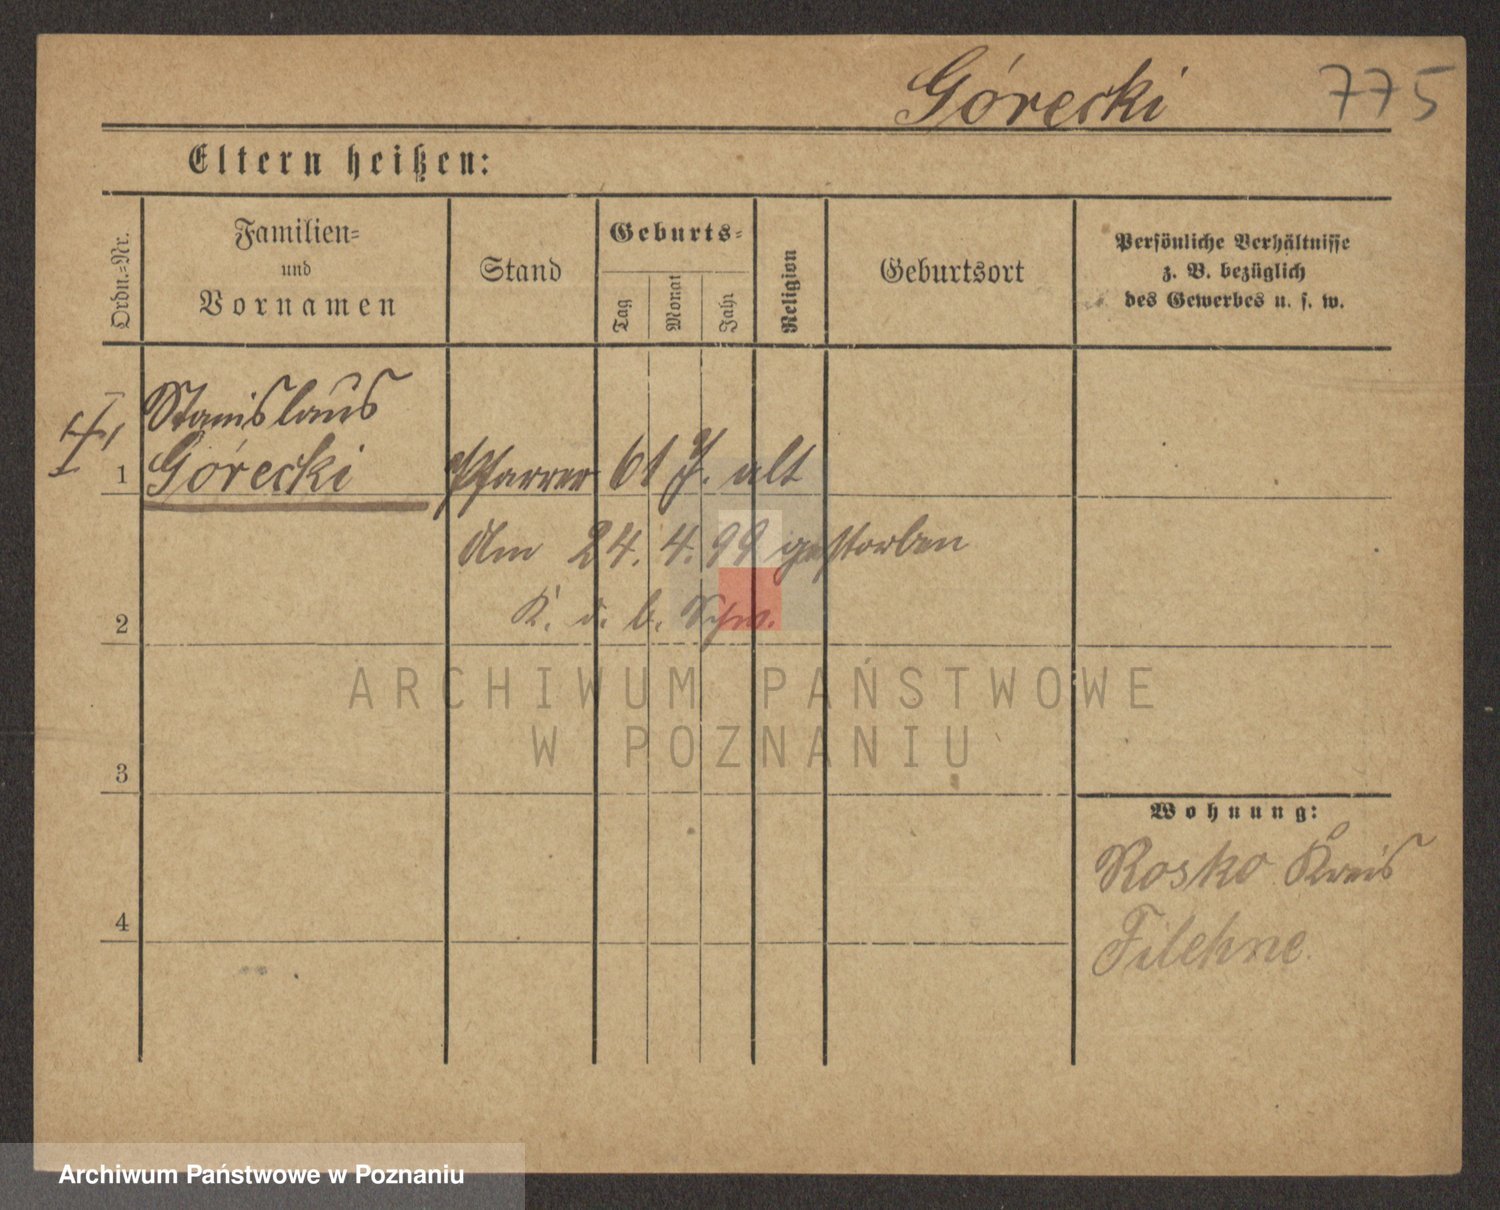 Górecki 775
Eltern heißen:
Ordn.=Nr.
Familien=
und
Vornamen
Stand
Geburts=
Tag
Monat
Jahr
Religion
Geburtsort
Persönliche Verhältnisse
z. B. bezüglich
des Gewerbes u. s. w.
Stanislaus
1 Górecki Pfarrer 61 J. alt
Am 24. 4. 99 gestorben
K. d. b. Schw.
2
ARCHIWUM PAŃSTWOWE
W POZNANIU
3
Wohnung:
Rosko Kreis
4
Filehne.
Archiwum Państwowe w Poznaniu